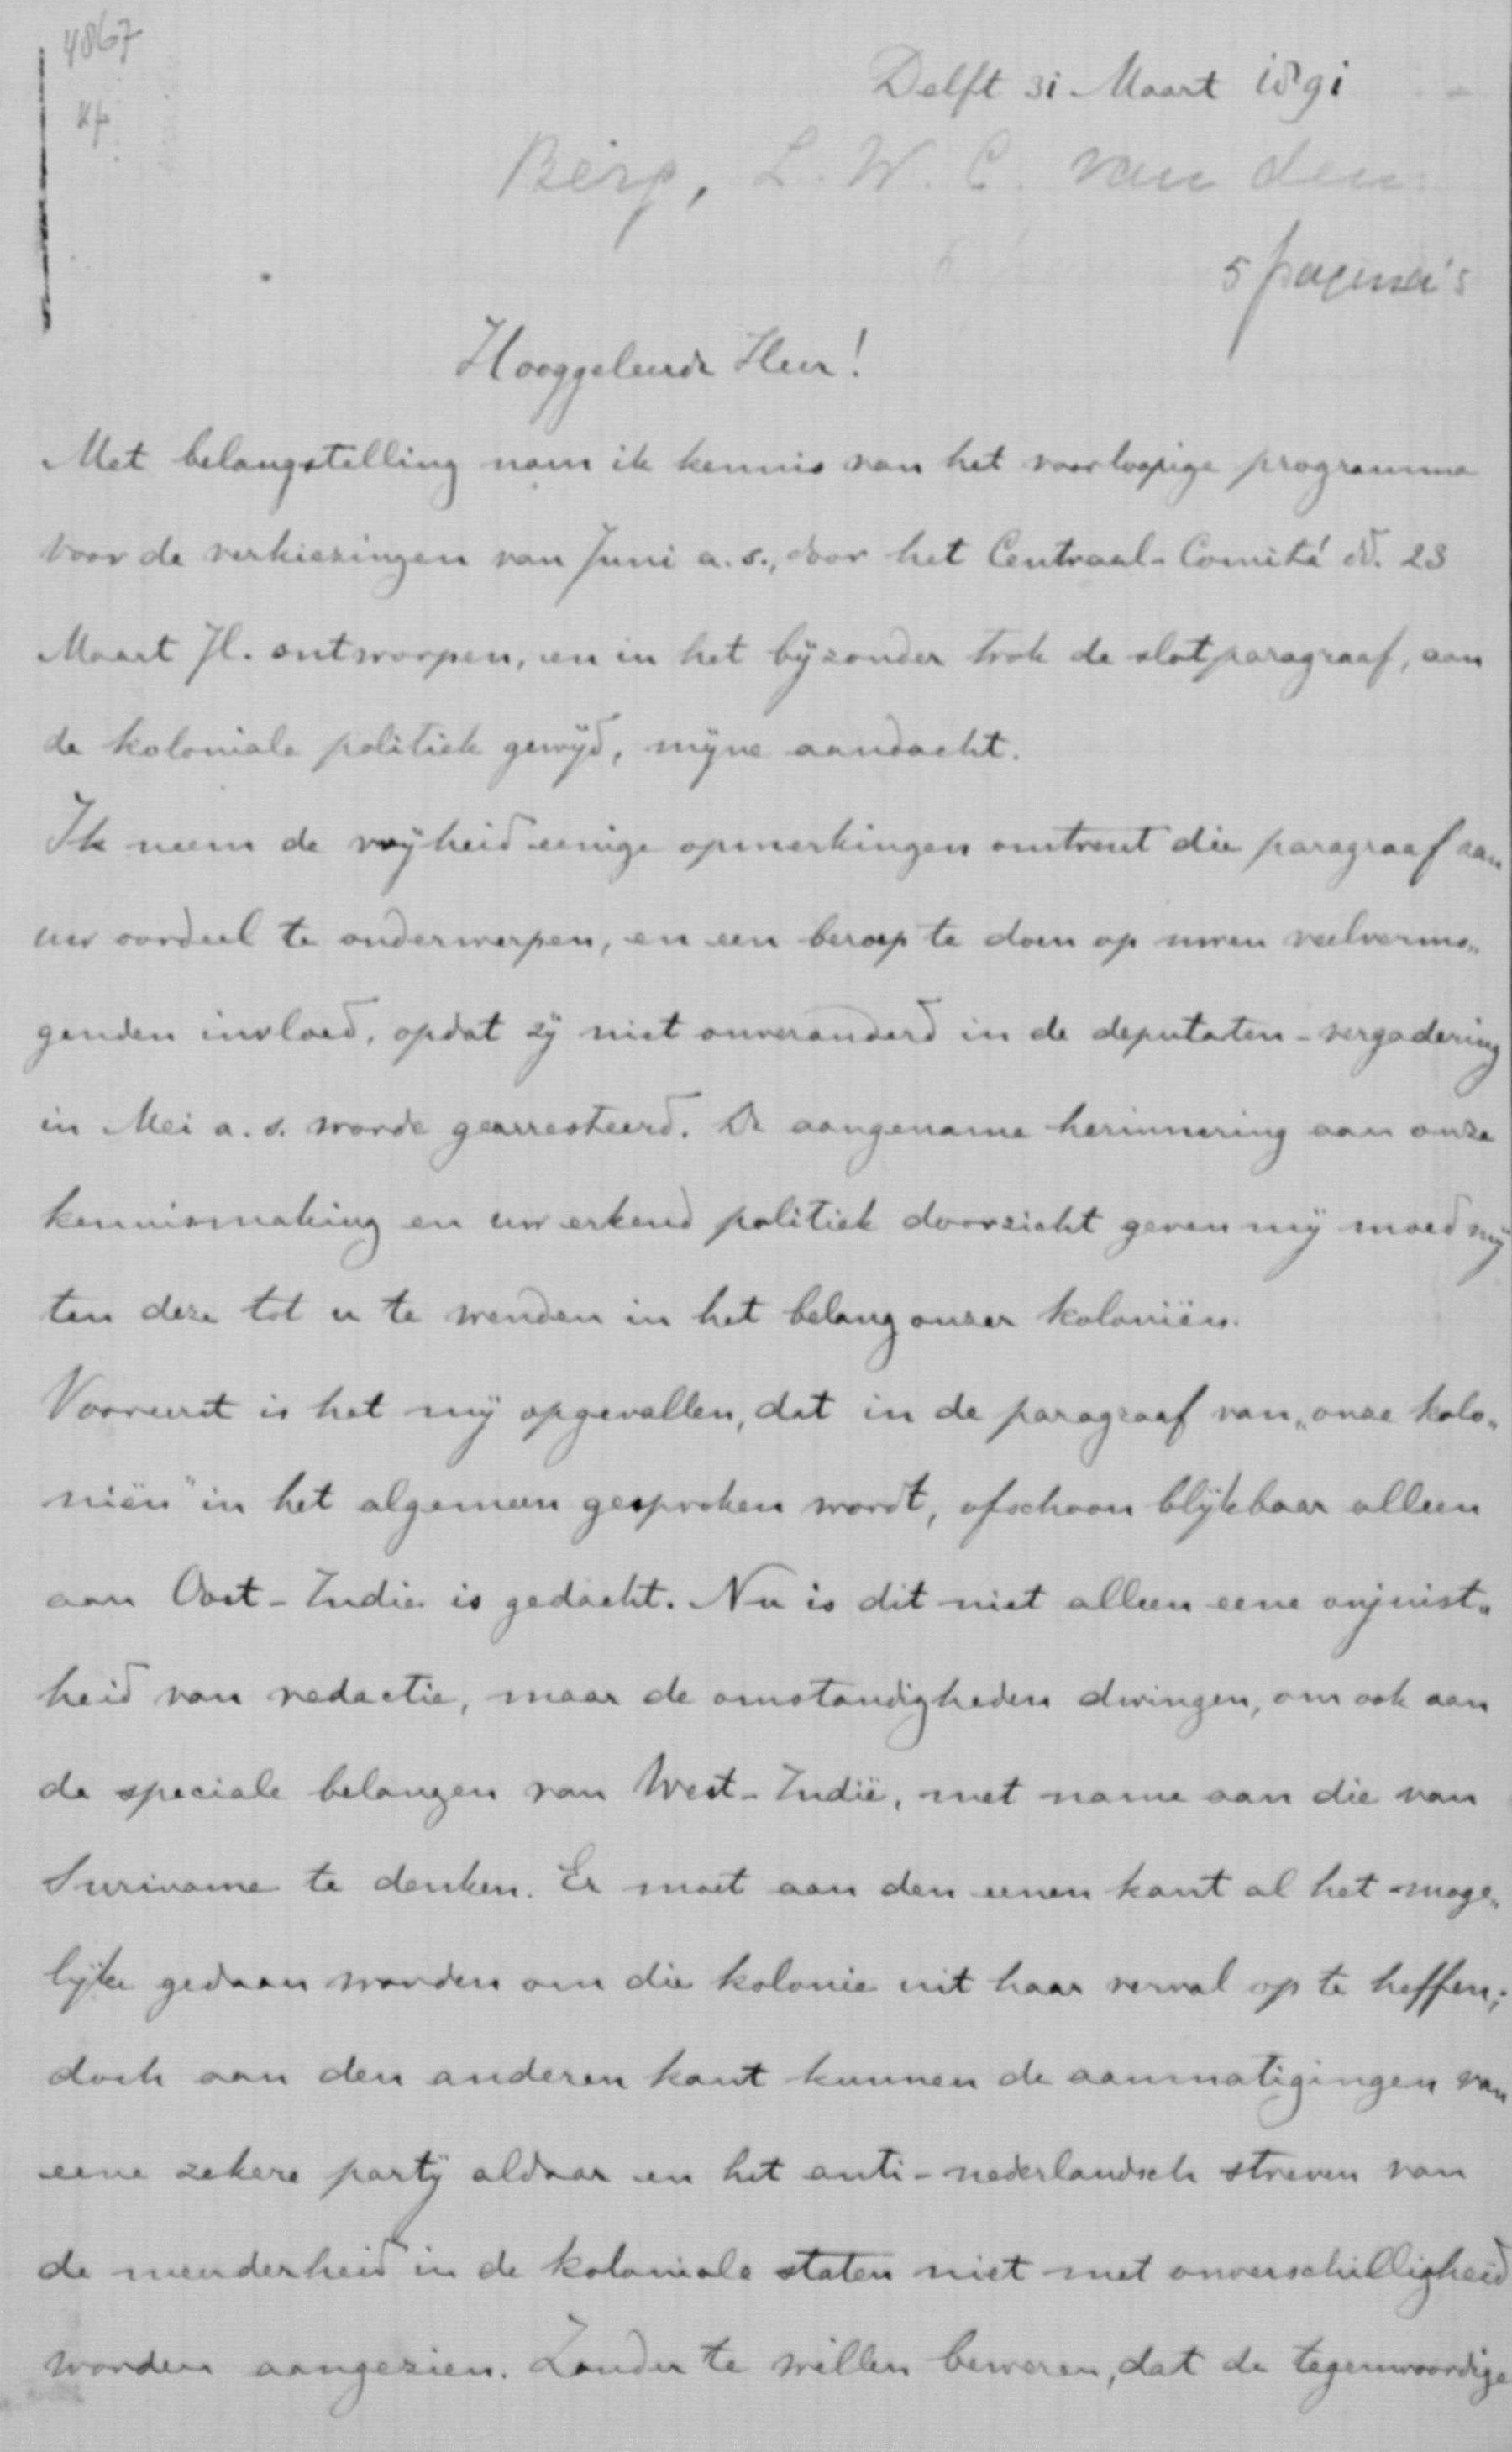 4867
Delft 31 Maart 1891
Berg, L. W. C. van den
5 pagina's
Hooggeleerde Heer!
Met belangstelling nam ik kennis van het voorloopige programma
voor de verkiezingen van Juni a. s., door het Centraal-Comité dd. 23
Maart Jl. ontworpen, en in het byzonder trok de slotparagraaf, aan
de koloniale politiek gewyd, myne aandacht.
Ik neem de vryheid eenige opmerkingen omtrent die paragraaf aan
uw oordeel te onderwerpen, en een beroep te doen op uwen veelvermo„
genden invloed, opdat zy niet onveranderd in de deputaten-vergadering
in Mei a. s. worde gearresteerd. De aangename herinnering aan onze
kennismaking en uw erkend politiek doorzicht geven my moed my
ten deze tot u te wenden in het belang onzer koloniën.
Vooreerst is het my opgevallen, dat in de paragraaf van „onze kolo„
niën" in het algemeen gesproken wordt, ofschoon blykbaar alleen
aan Oost-Indië is gedacht. Nu is dit niet alleen eene onjuist„
heid van redactie, maar de omstandigheden dwingen, om ook aan
de speciale belangen van West-Indië, met name aan die van
Suriname te denken. Er moet aan den eenen kant al het moge„
lyke gedaan worden om die kolonie uit haar verval op te heffen;
doch aan den anderen kant kunnen de aanmatigingen van
eene zekere party aldaar en het anti-nederlandsch streven van
de meerderheid in de koloniale staten niet met onverschilligheid
worden aangezien. Zonder te willen beweren, dat de tegenwoordige